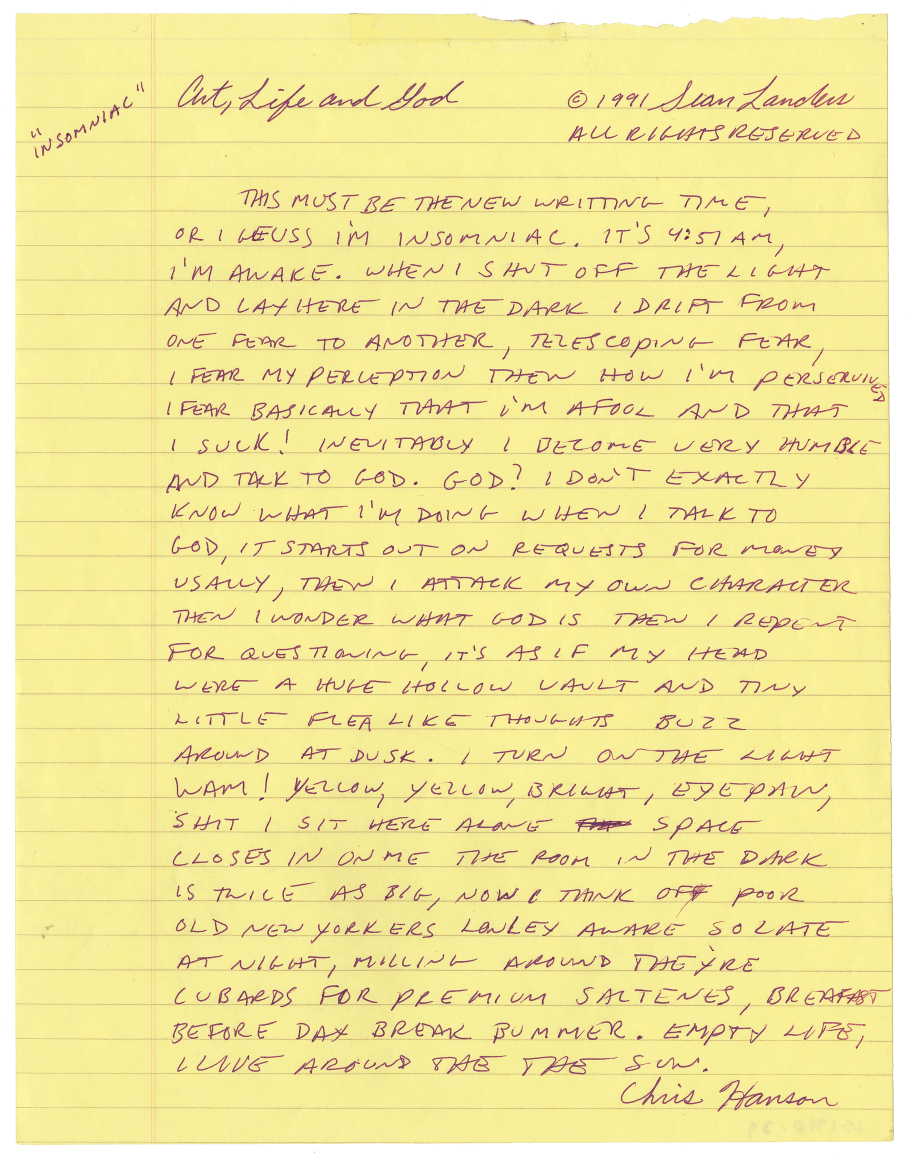 "INSOMNIAC"
Art, Life and God
© 1991 Sean Landers
ALL RIGHTS RESERVED
THIS MUST BE THE NEW WRITTING TIME,
OR I GEUSS I'M INSOMNIAC. IT'S 4:51 AM,
I'M AWAKE. WHEN I SHUT OFF THE LIGHT
AND LAY HERE IN THE DARK I DRIFT FROM
ONE FEAR TO ANOTHER, TELESCOPING FEAR,
I FEAR MY PERCEPTION THEN HOW I'M PERSERVIVED
I FEAR BASICALLY THAT I'M A FOOL AND THAT
I SUCK! INEVITABLY I BECOME VERY HUMBLE
AND TALK TO GOD. GOD? I DON'T EXACTLY
KNOW WHAT I'M DOING WHEN I TALK TO
GOD, IT STARTS OUT ON REQUESTS FOR MONEY
USALLY, THEN I ATTACK MY OWN CHARACTER
THEN I WONDER WHAT GOD IS THEN I REPENT
FOR QUESTIONING, IT'S AS IF MY HEAD
WERE A HUGE HOLLOW VAULT AND TINY
LITTLE FLEA LIKE THOUGHTS BUZZ
AROUND AT DUSK. I TURN ON THE LIGHT
WAM! YELLOW, YELLOW, BRIGHT, EYE PAIN,
SHIT I SIT HERE ALONE SPACE
CLOSES IN ON ME THE ROOM IN THE DARK
IS TWICE AS BIG, NOW I THINK OF POOR
OLD NEW YORKERS LONLEY AWARE SO LATE
AT NIGHT, MILLING AROUND THEY'RE
CUBARDS FOR PREMIUM SALTENES, BREAFAST
BEFORE DAY BREAK BUMMER. EMPTY LIFE,
I LIVE AROUND THE THE SUN.
Chris Hanson